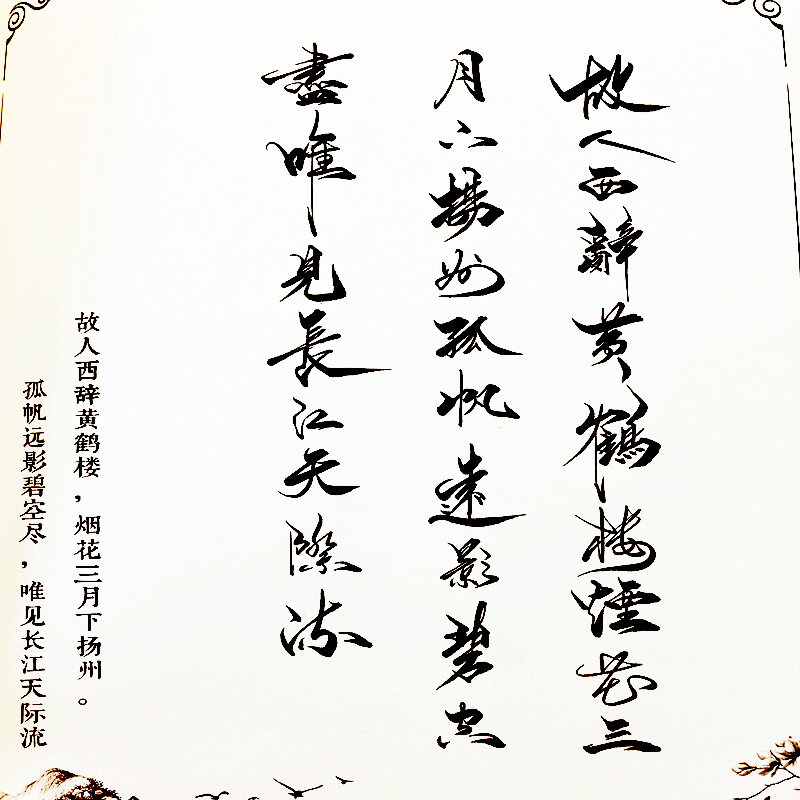 故人西辭黄鶴樓煙花三
月下揚州孤帆遠影碧空
盡唯見長江天際流
故人西辞黄鹤楼，烟花三月下扬州。
孤帆远影碧空尽，唯见长江天际流